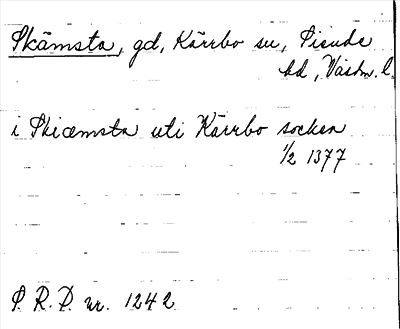 Skämsta, gd, Kärrbo sn, Siende
hd, Västm. l.
i Skiæmsta uti Kärrbo socken
1/2 1377
S. R. P. nr. 1242